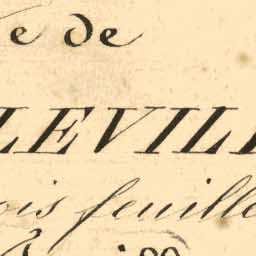 e de
LLEVILL
ois feuille